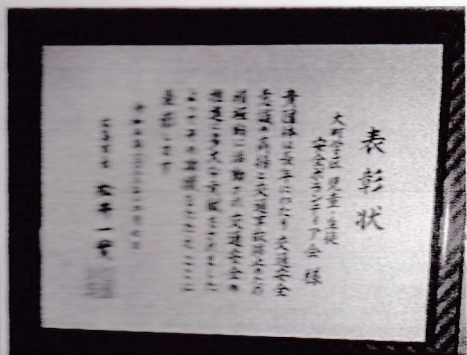 表彰状
大町学区 児童・生徒
安全ボランティア会 様
貴団体は長年にわたり 交通安全
意識の高揚と交通事故防止のため
積極的に活動され 交通安全の
推進に多大な貢献をされました
よってその功績をたたえ ここに
表彰します